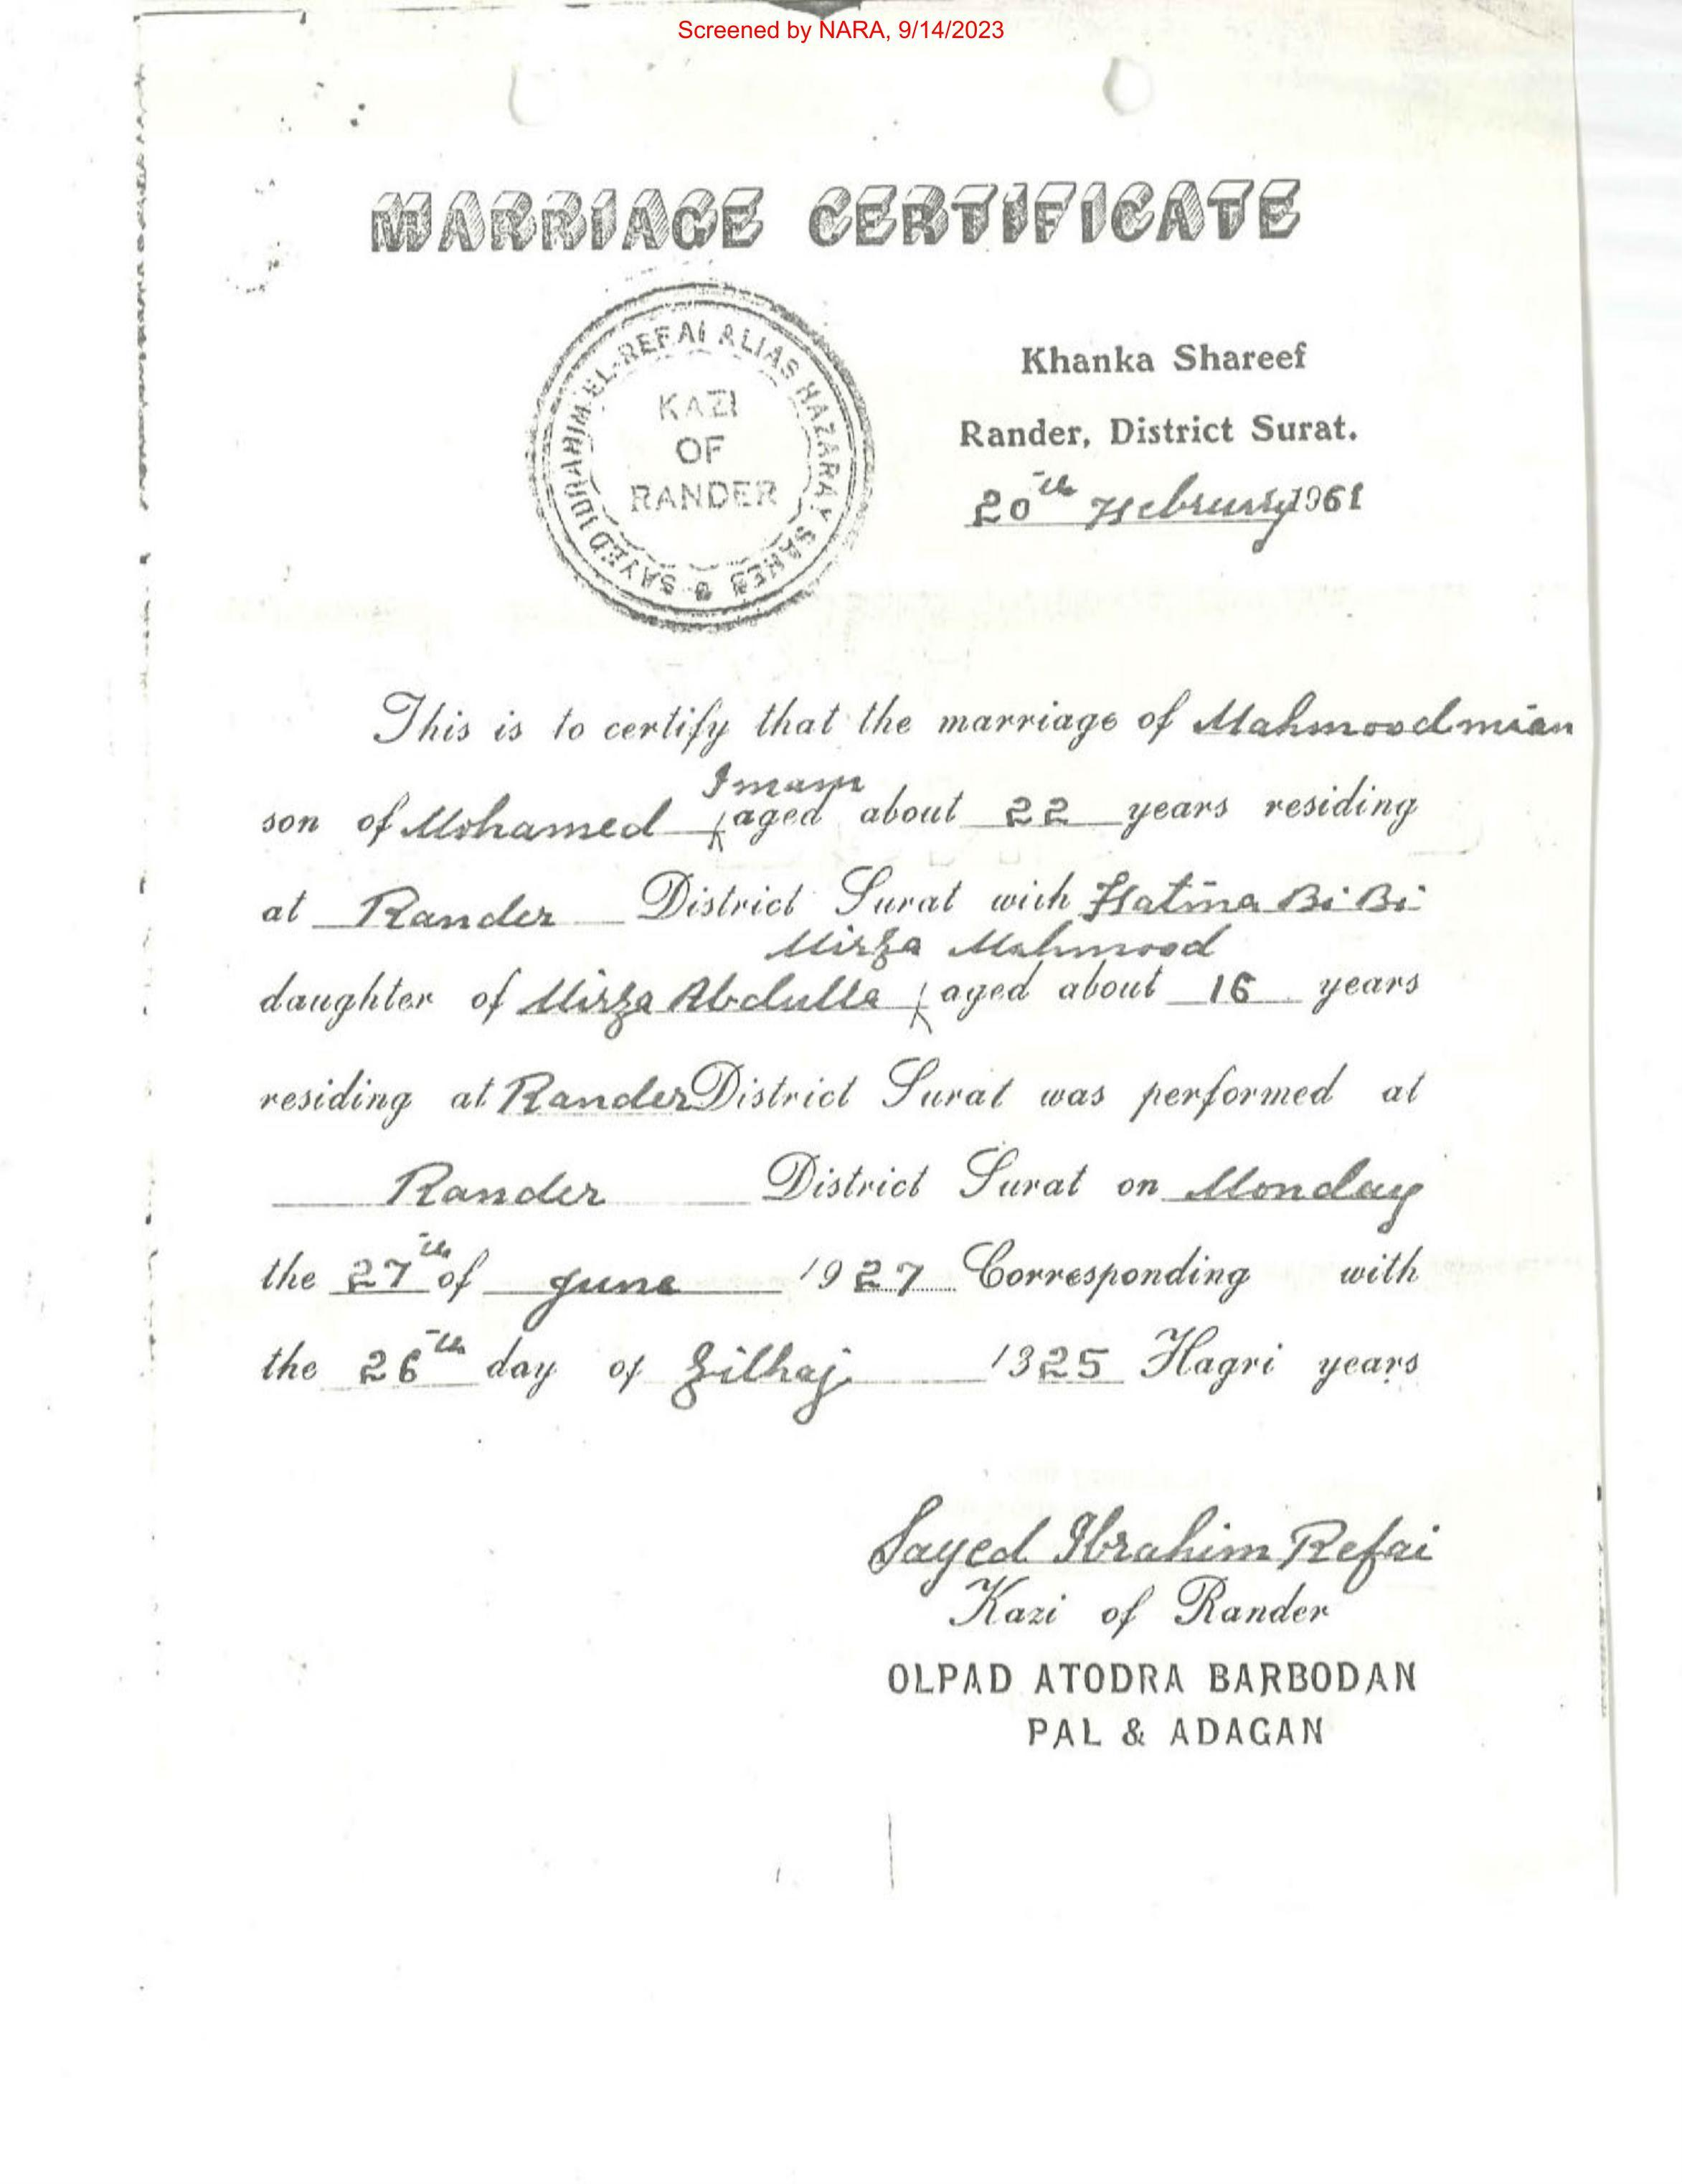 Screened by NARA, 9/14/2023
MARRIAGE CERTIFICATE
SAYED IBRAHIM EL-REFAI ALIAS HAZARAY SAHEB
KAZI
OF
RANDER
Khanka Shareef
Rander, District Surat.
20th February 1961
This is to certify that the marriage of Mahmoodmian
Imam
son of Mohamed aged about 22 years residing
at Rander District Surat with Fatma Bi Bi
Mirza Mahmood
daughter of Mirza Abdulla aged about 16 years
residing at Rander District Surat was performed at
Rander District Surat on Monday
the 27th of June 1927 Corresponding with
the 26th day of Zilhaj 1325 Hagri years
Sayed Ibrahim Refai
Kazi of Rander
OLPAD ATODRA BARBODAN
PAL & ADAGAN